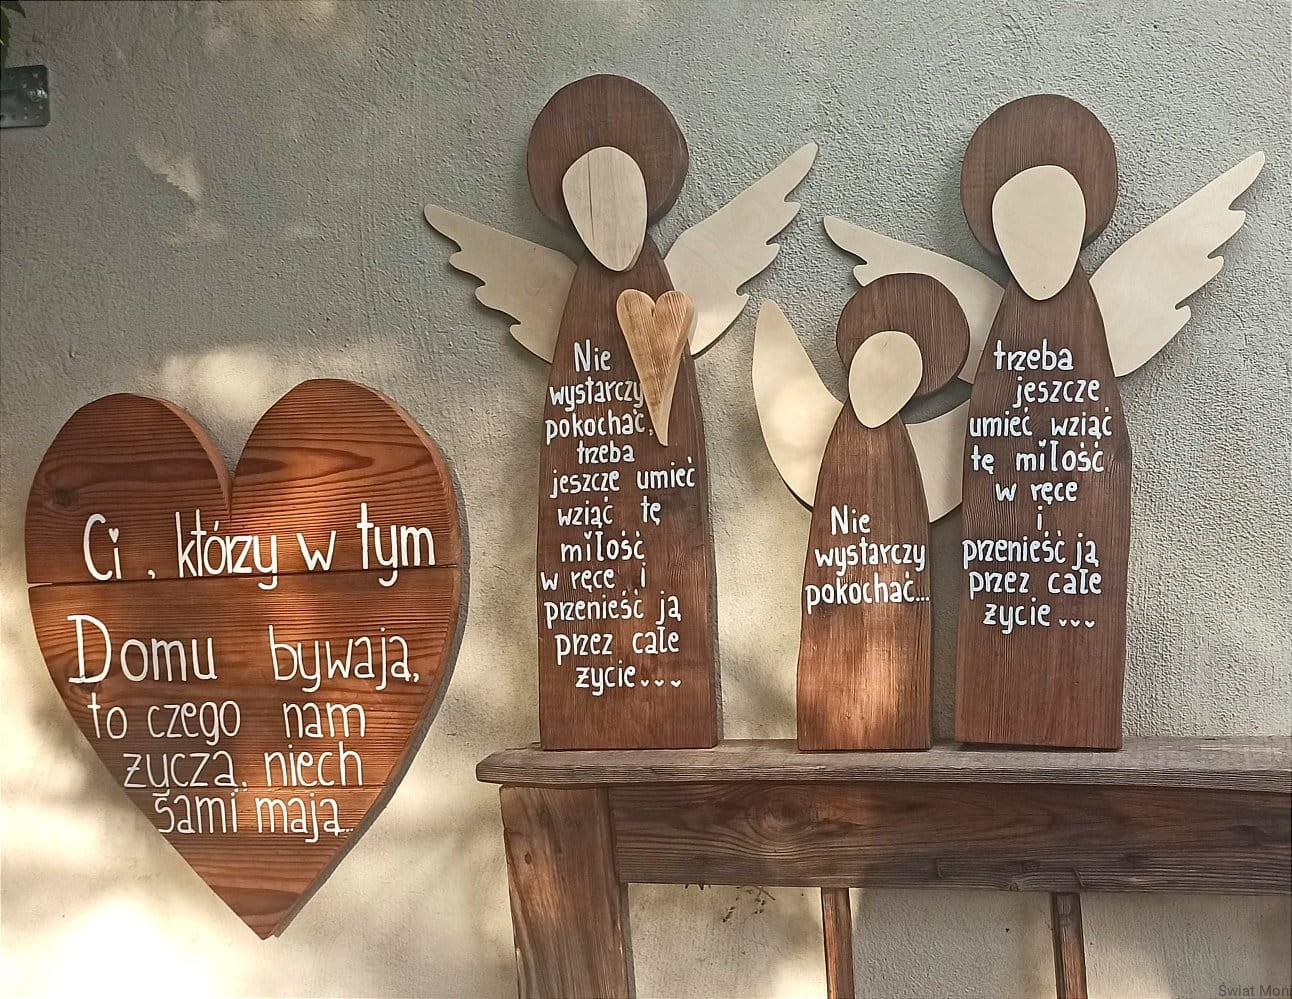 Ci, którzy w tym
Domu bywają,
to czego nam
życzą, niech
sami mają...
Nie
wystarczy
pokochać,
trzeba
jeszcze umieć
wziąć tę
miłość
w ręce i
przenieść ją
przez całe
życie...
Nie
wystarczy
pokochać...
trzeba
jeszcze
umieć wziąć
tę miłość
w ręce
i
przenieść ją
przez całe
życie...
Świat Moni